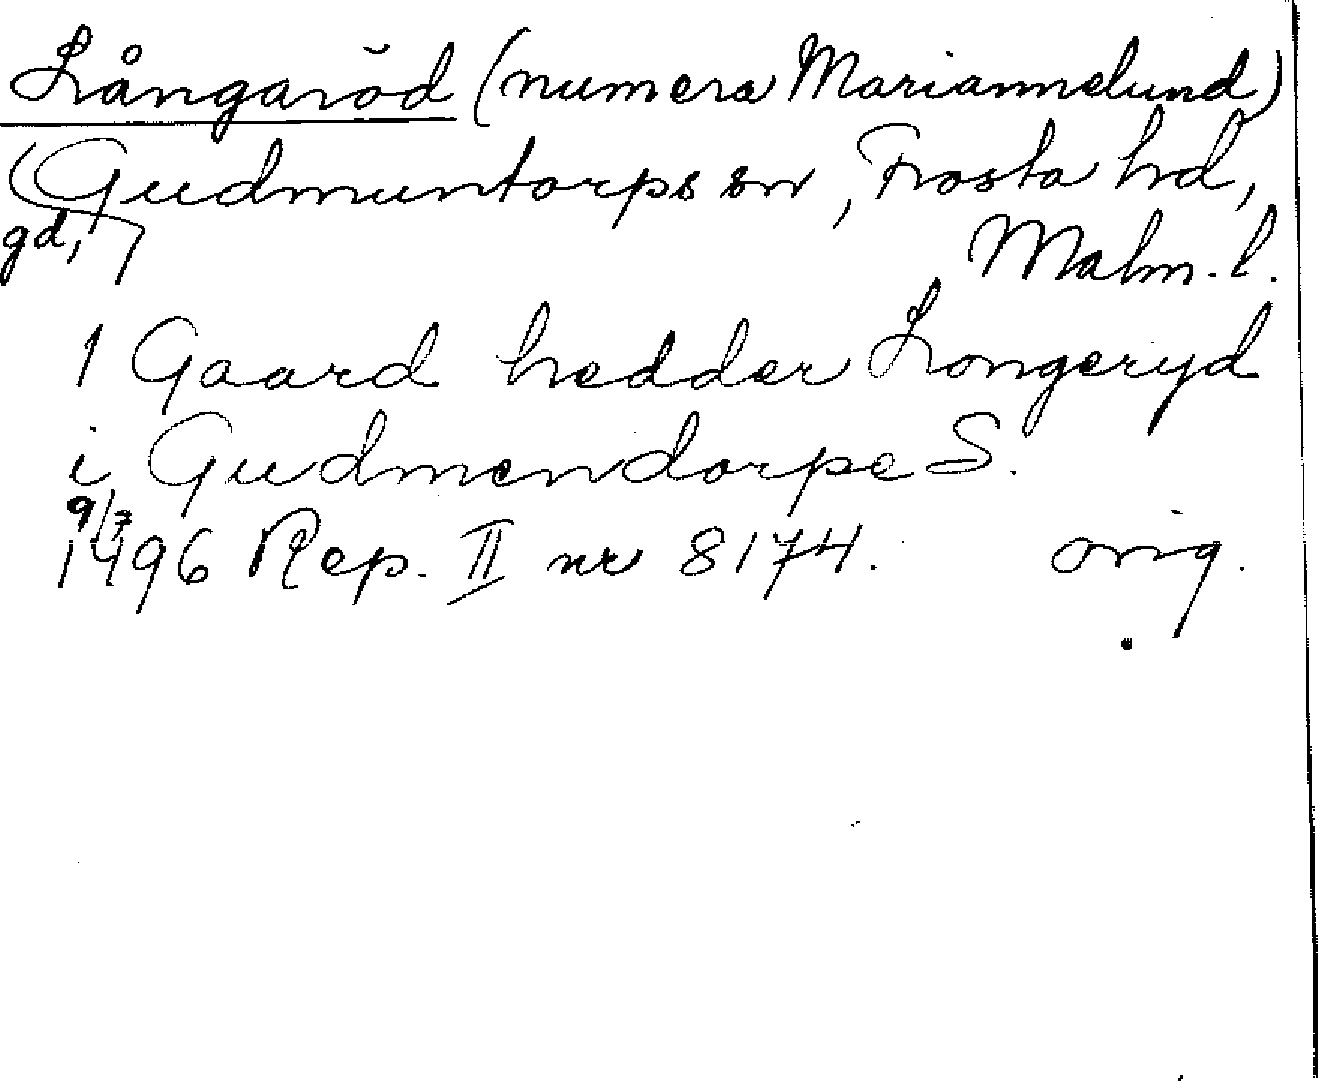 Långaröd (numera Mariannelund)
Gudmuntorps sn, Frosta hd,
gd, Malm. l.
1 Gaard hedder Longeryd
i Gudmendorpe S.
9/3
1496 Rep. II nr 8174. orig.